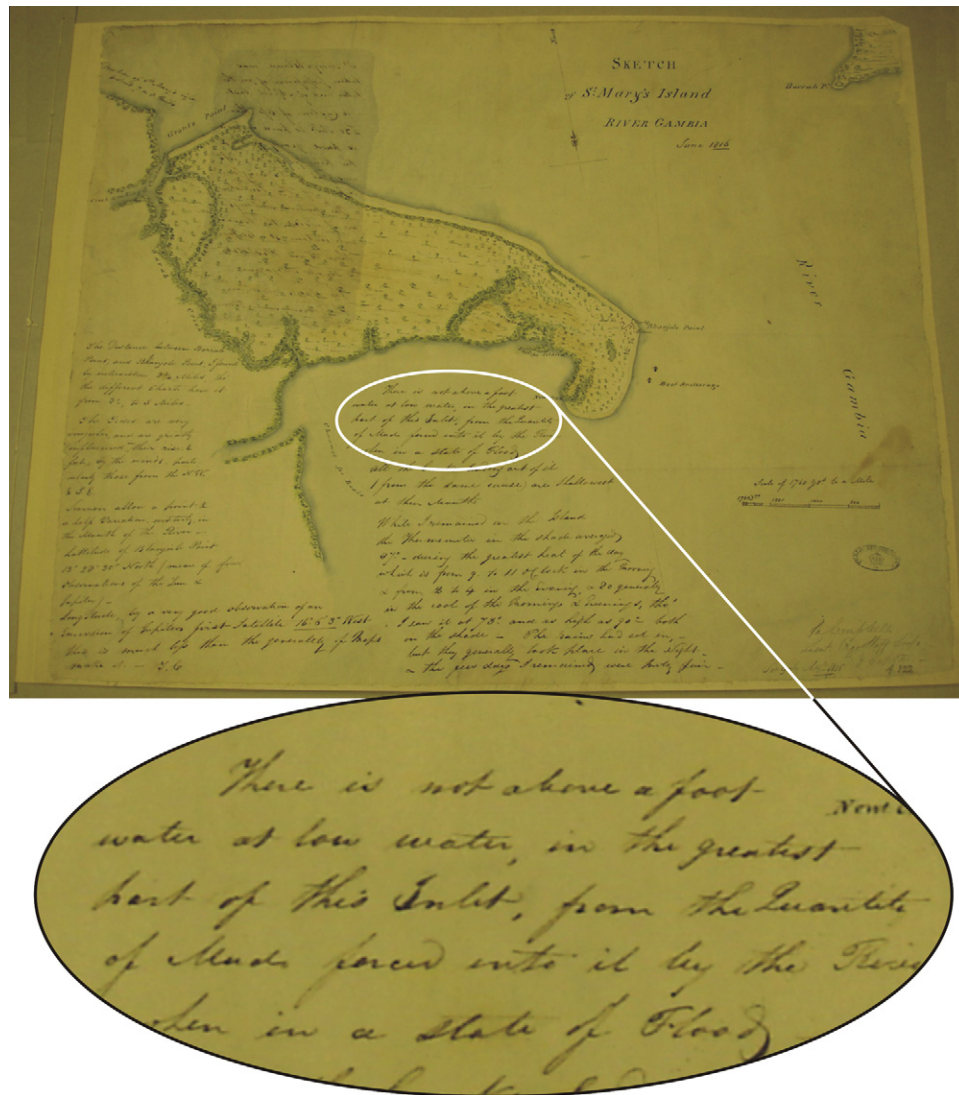 SKETCH
of St. Mary's Island
RIVER GAMBIA
June 1816
Barrah Pt.
Grants Point
River
Gambia
Point
Best Anchorage
Scale of 1760 Yds. to a Mile
The Distance between Barrah
Point, and Point I found
by
the different Charts have it
from 3 to 4 Miles.
The Tides are very
irregular and are greatly
influenced in their rise &
fall, by the winds, parti-
cularly those from the N.W.
& S.E.
allow a point &
a half Variation, westerly, in
the Mouth of the River -
Latitude of Point
13° North (mean of four
observations of the Sun &
Jupiter) -
Longitude, by a very good observation of an
Emersion of Jupiters first Satellite 16° 6' 3" West
this is much less than the generality of Maps
make it -
There is not above a foot
water at low water, in the greatest
part of this Inlet, from the Quantite
of Mud forced into it by the River
when in a state of Flood
all the out of it
(from the same cause) are Shallowest
at their Mouth
While I remained on the Island
the Thermometer in the shade averaged
during the greatest heat of the day
which is from 9 to 11 oClock in the Morning
& from 2 to 4 in the evening, & 80 generally
in the cool of the Mornings & Evenings, tho'
I saw it at 78° and as high as 90° both
in the shade - The rains had set in,
but they generally took place in the Night -
- the few days I remained were pretty fair -
There is not above a foot
water at low water, in the greatest
part of this Inlet, from the Quantite
of Mud forced into it by the River
when in a state of Flood